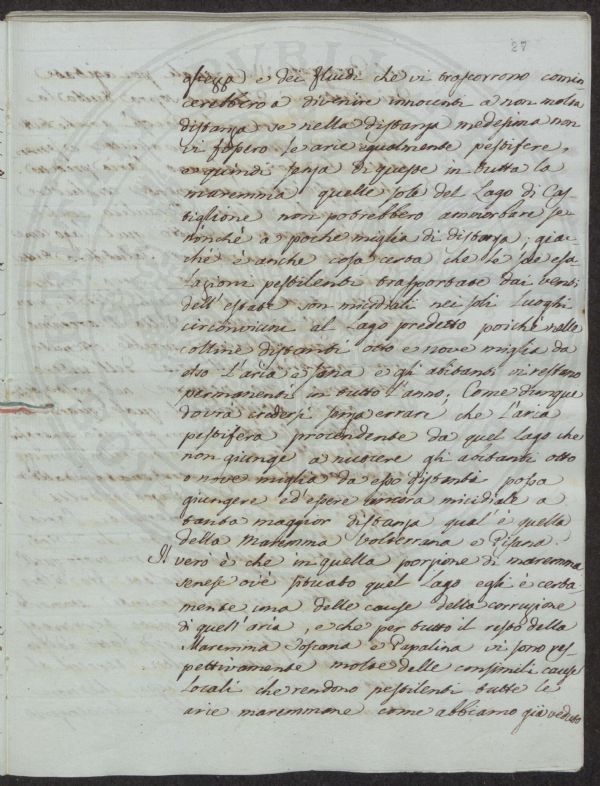 27
ghezza e dei fluidi che vi trascorrono comin
cerebbero a divenire innocenti a non molta
distanza se nella distanza medesima non
vi fossero le arie egualmente pestifere,
e quindi senza di queste in tutta la
maremma quelle sole del Lago di Cas=
tiglione non potrebbero ammorbare se
nonchè a poche miglia di distanza; giac=
chè è anche cosa certa che le sue esa=
lazioni pestilenti trasportate dai venti
dell'estate son micidiali nei soli luoghi
circonvicini al Lago predetto poichè nelle
colline distanti otto e nove miglia da
esso l'aria è sana e gli abitanti vi restano
permanenti in tutto l'anno; Come dunque
dovrà credersi senza errare che l'aria
pestifera procendente da quel Lago che
non giunge a nuocere gli abitanti otto
o nove miglia da esso distanti possa
giungere ed essere ancora micidiale a
tanta maggior distanza qual'è quella
della Maremma Volterrana e Pisana.
Il vero è che in quella porzione di maremma
senese ov'è situato quel Lago egli è certa=
mente una delle cause della corruzione
di quell'aria, e che per tutto il resto della
Maremma Toscana e Papalina vi sono res
pettivamente molte delle consimili cause
locali che rendono pestilenti tutte le
arie maremmane come abbiamo già veduto